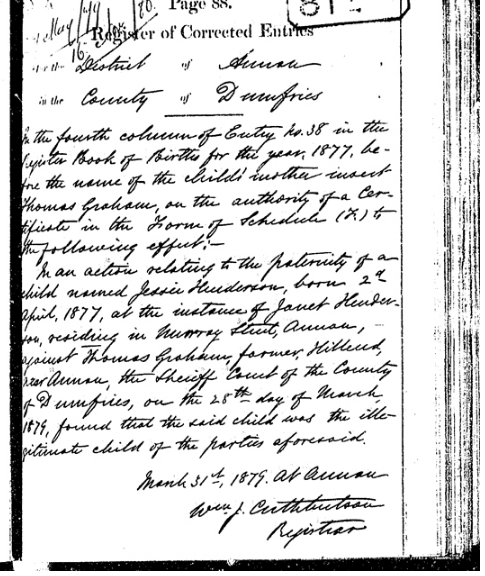 Page 88.
81
Register of Corrected Entries
District of Annan
in the County of Dumfries
In the fourth column of Entry No. 38 in the
Register Book of Births for the year, 1877, be-
fore the name of the child's mother insert
Thomas Graham, on the authority of a Cer-
tificate in the Form of Schedule (F.) to
the following effect:-
In an action relating to the paternity of a
child named Jessie Henderson, born 2d
April, 1877, at the instance of Janet Hender-
son, residing in Murray Street, Annan,
against Thomas Graham, farmer, Hillend,
near Annan, the Sheriff Court of the County
of Dumfries, on the 28th day of March,
1879, found that the said child was the ille-
gitimate child of the parties aforesaid.
March 31st, 1879. At Annan
Wm. J. Cuthbertson
Registrar